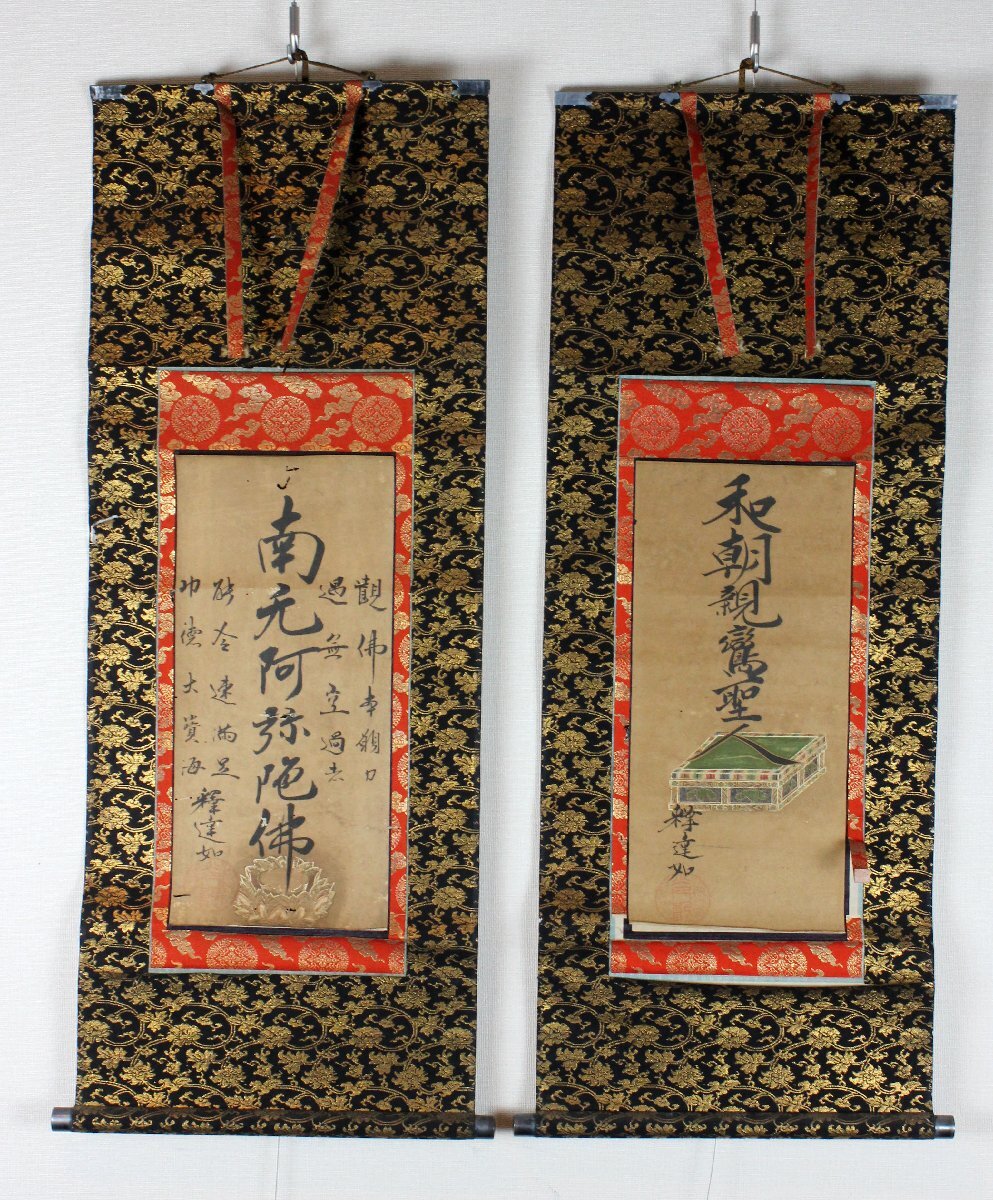 南无阿弥陀佛
觀佛本願力
遇無空過者
能令速満足
功徳大寶海
釋達如
和朝親鸞聖人
釋達如